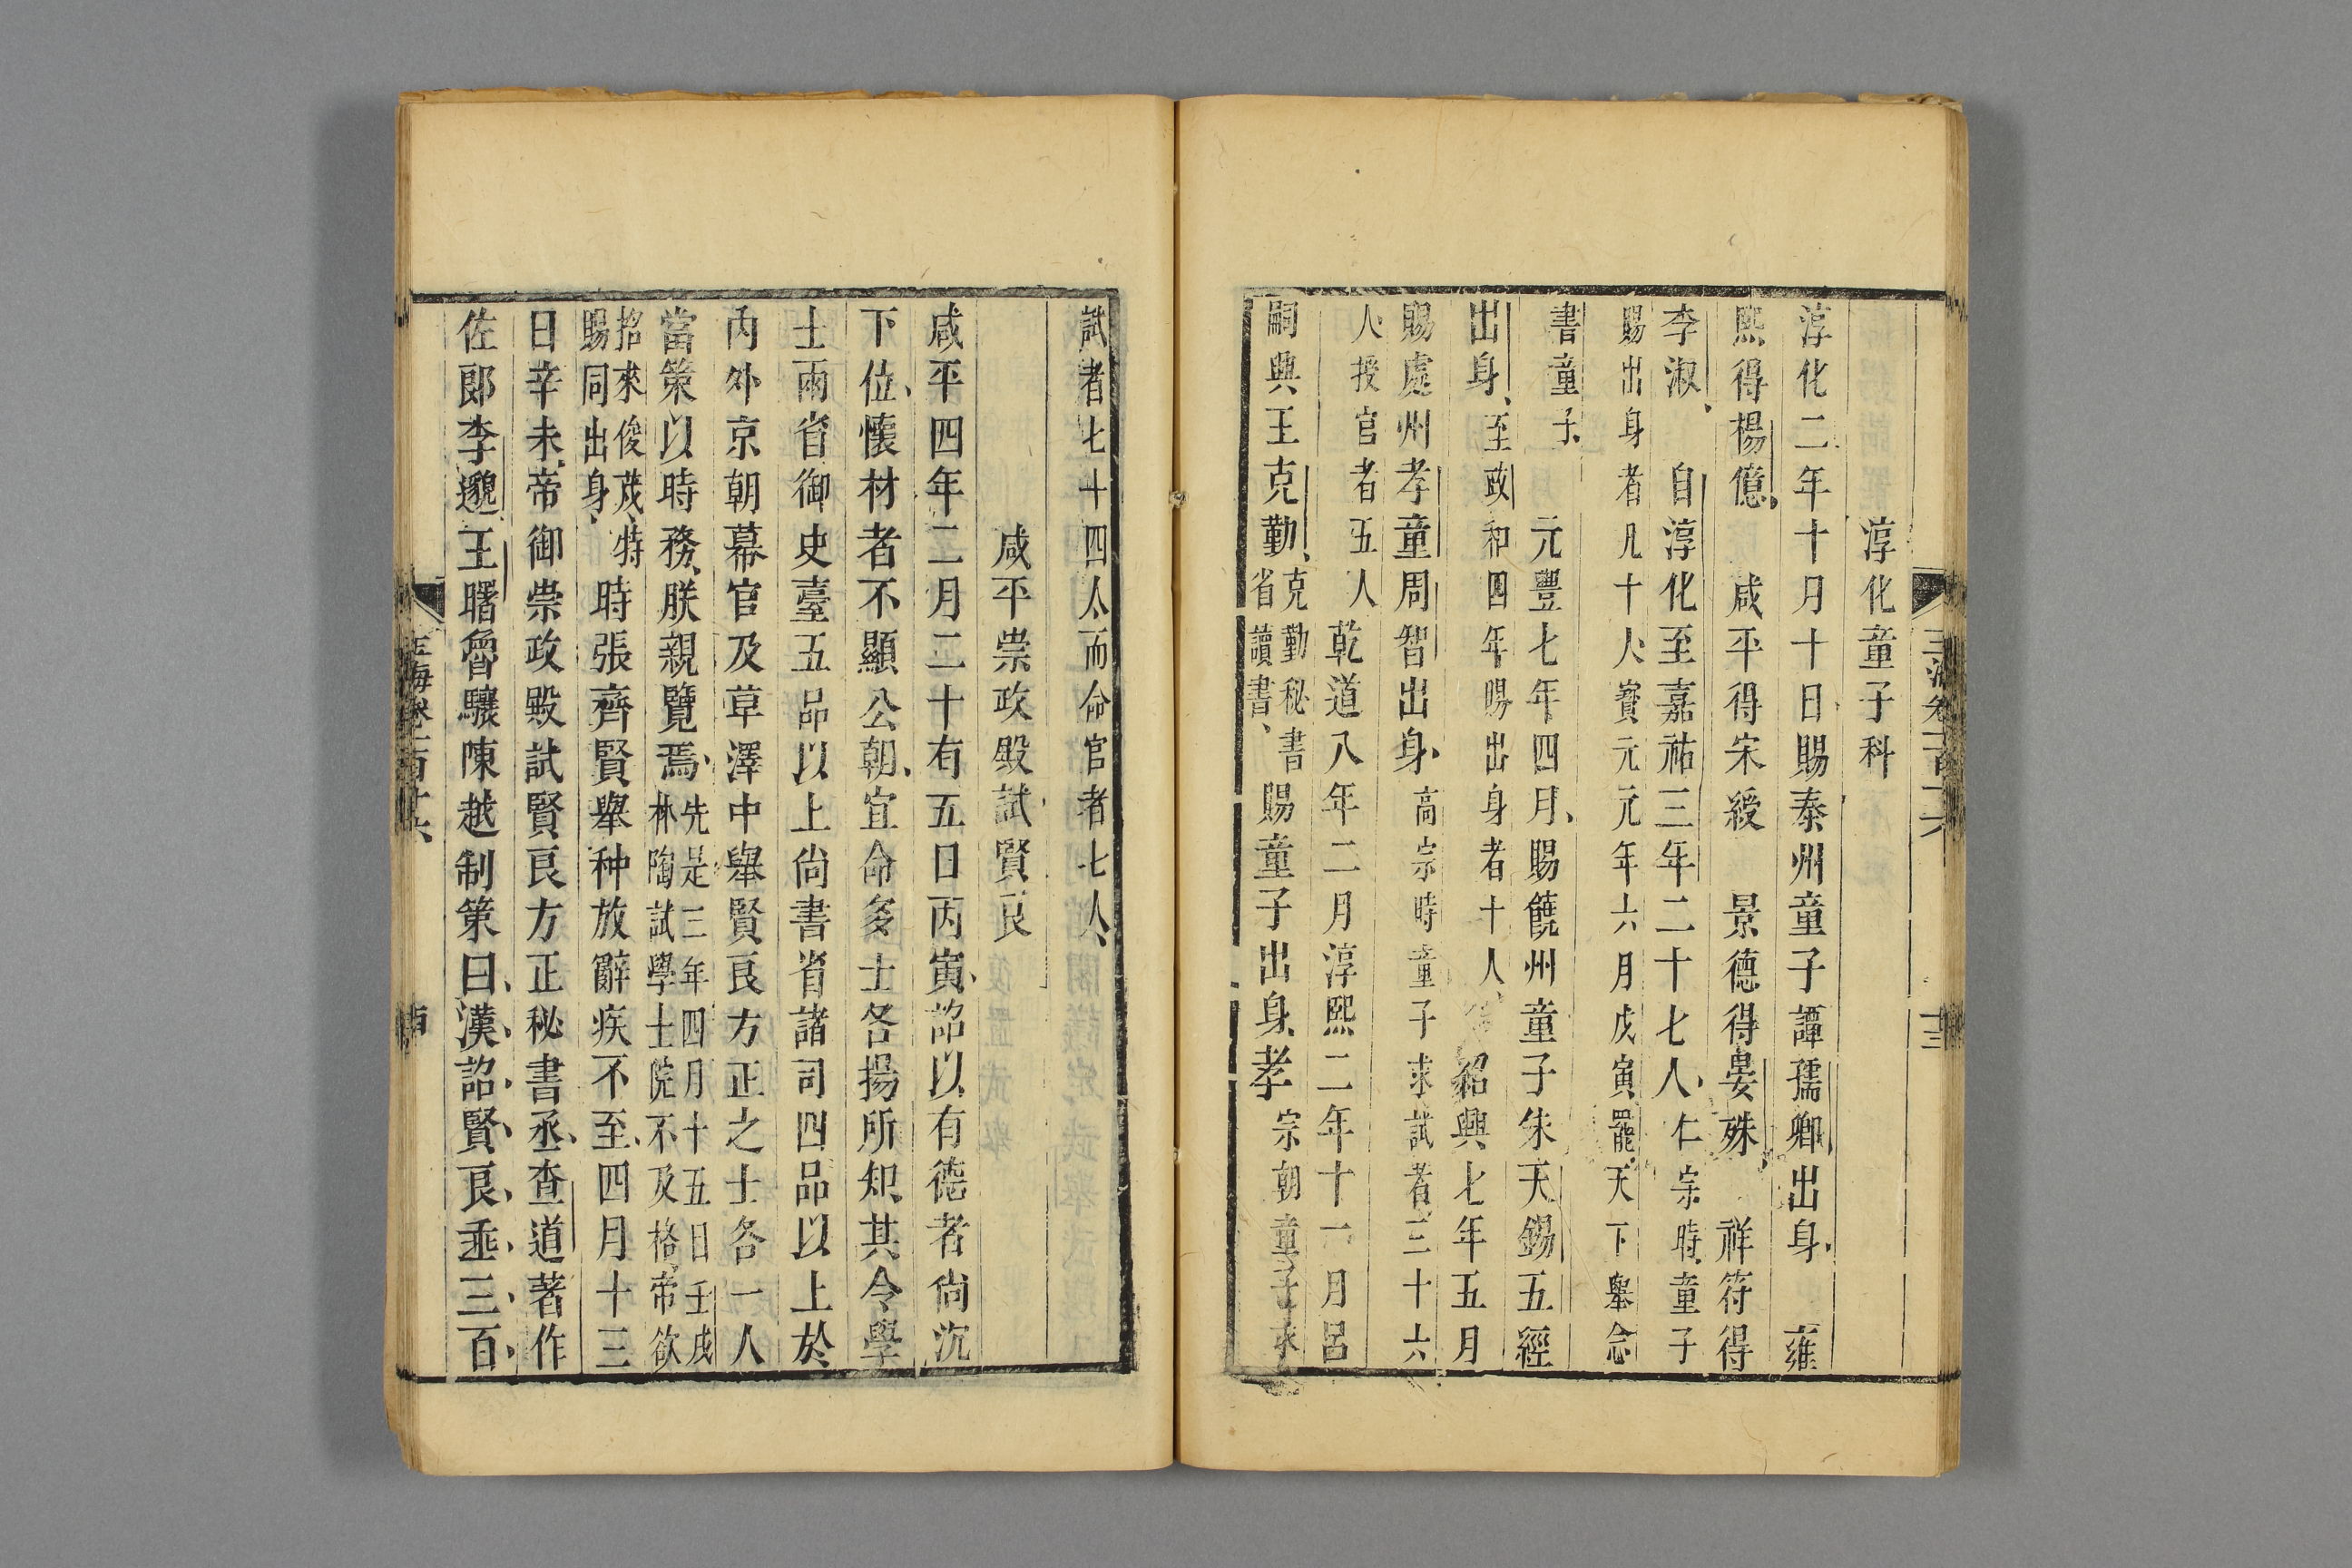 玉海卷一百十六
十三
淳化童子科
淳化二年十月十日賜泰州童子譚孺卿出身 雍
熙得楊億 咸平得宋綬 景德得晏殊 祥符得
李淑 自淳化至嘉祐三年二十七人仁宗時童子
賜出身者凡十人寶元元年六月戊寅罷天下舉念
書童子 元豐七年四月賜饒州童子朱天錫五經
出身至政和四年賜出身者十人 紹興七年五月
賜處州孝童周智出身高宗時童子求試者三十六
人授官者五人 乾道八年二月淳熙二年十一月呂
嗣興王克勤克勤秘書
省讀書賜童子出身孝宗朝童子求
試者七十四人而命官者七人
咸平崇政殿試賢良
咸平四年二月二十有五日丙寅詔以有德者尙沉
下位懷材者不顯公朝宜命多士各揚所知其令學
士兩省御史臺五品以上尙書省諸司四品以上於
內外京朝幕官及草澤中舉賢良方正之士各一人
當策以時務朕親覽焉先是三年四月十五日壬戌
林陶試學士院不及格帝欲
招來俊茂特
賜同出身時張齊賢舉种放辭疾不至四月十三
日辛未帝御崇政殿試賢良方正秘書丞查道著作
佐郎李邈王曙魯驤陳越制策曰漢詔賢良垂三百
玉海卷一百十六
十四